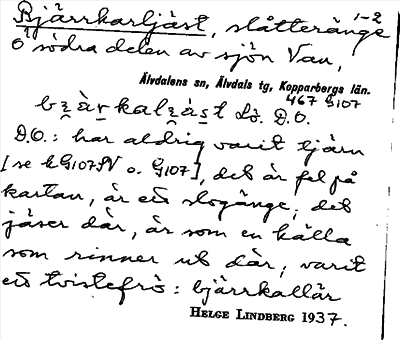 Bjärrkarljäst, slåtteränge 1-2
ö södra delen av sjön Van,
Älvdalens sn, Älvdals tg, Kopparbergs län.
467 G107
bz̯àr̯kalz̯àst Lò. D.O.
D.O.: har aldrig varit tjärn
[se kG107SV o. G107], det är fel på
kartan, är ett slogänge, det
jäser där, är som en källa
som rinner ut där, varit
ett tvistefrö: bjärrkallär
HELGE LINDBERG 1937.